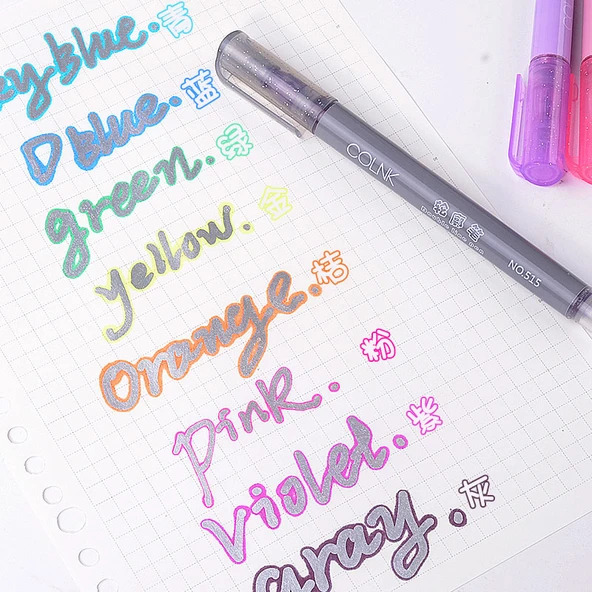 ky blue. 青
D blue. 蓝
green. 绿
yellow. 金
Orange. 桔
Pink. 粉
Violet. 紫
gray. 灰
COLNK
轮廓笔
NO.515